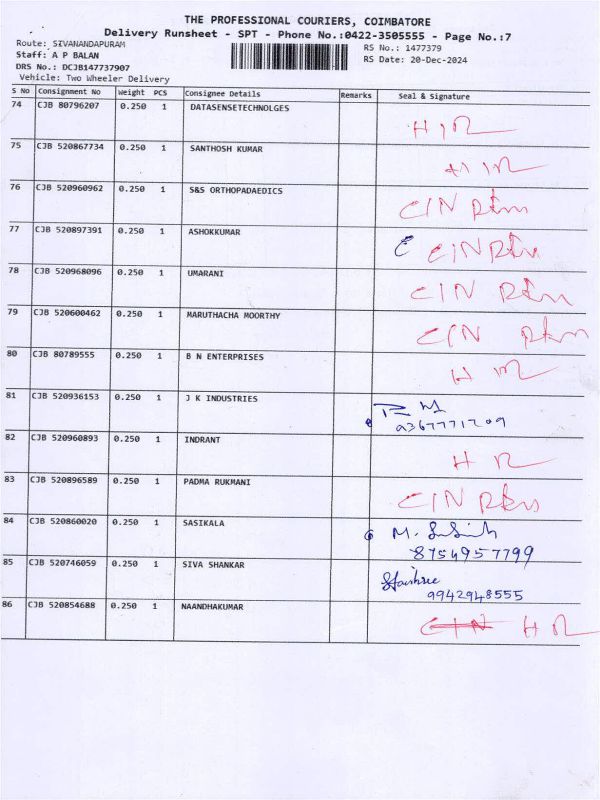 THE PROFESSIONAL COURIERS, COIMBATORE
Delivery Runsheet - SPT - Phone No.:0422-3505555 - Page No.:7
Route: SIVANANDAPURAM
RS No.: 1477379
Staff: A P BALAN
RS Date: 20-Dec-2024
DRS No.: DCJB147737907
Vehicle: Two Wheeler Delivery
S No Consignment No Weight PCS Consignee Details Remarks Seal & Signature
74 CJB 80796207 0.250 1 DATASENSETECHNOLGES
75 CJB 520867734 0.250 1 SANTHOSH KUMAR
76 CJB 520960962 0.250 1 S&S ORTHOPADAEDICS CIN Rtn
77 CJB 520897391 0.250 1 ASHOKKUMAR CIN Rtn
78 CJB 520968096 0.250 1 UMARANI CIN Rtn
79 CJB 520600462 0.250 1 MARUTHACHA MOORTHY CIN Rtn
80 CJB 80789555 0.250 1 B N ENTERPRISES
81 CJB 520936153 0.250 1 J K INDUSTRIES
9367771209
82 CJB 520960893 0.250 1 INDRANT H R
83 CJB 520896589 0.250 1 PADMA RUKMANI CIN Rtn
84 CJB 520860020 0.250 1 SASIKALA
8754957799
85 CJB 520746059 0.250 1 SIVA SHANKAR
9942948555
86 CJB 520854688 0.250 1 NAANDHAKUMAR CIN H R